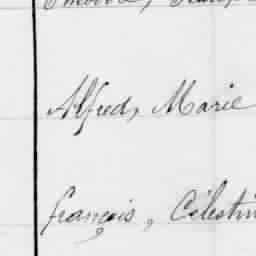 Alfred, Marie
françois, Célestin